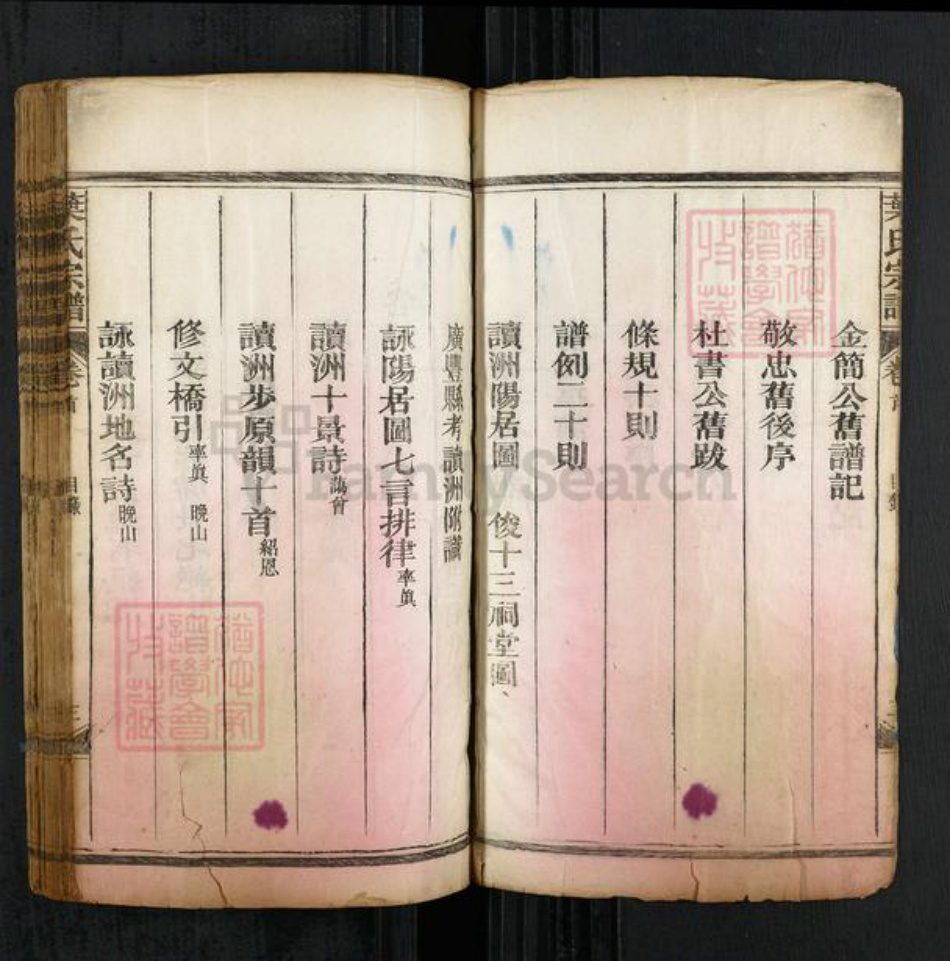 金簡公舊譜記
敬忠舊後序
杜書公舊跋
條規十則
譜例二十則
讀洲陽居圖 俊十三祠堂圖、
廣豐縣考讀洲附識
詠陽居圖七言排律 率眞
讀洲十景詩 藹會
讀洲步原韻十首 紹恩
修文橋引 率眞 晚山
詠讀洲地名詩 晚山
葉氏宗譜 卷首 目錄 三
葉氏宗譜 卷首 目錄
FamilySearch